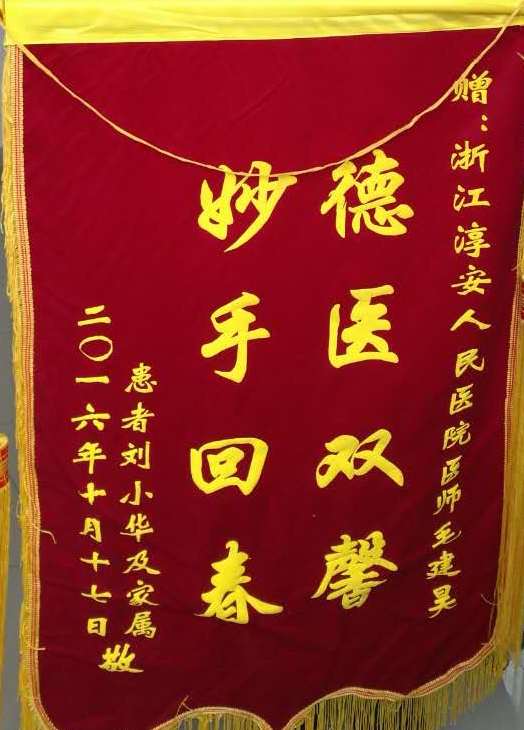 赠：浙江淳安人民医院医师毛建昊
德医双馨
妙手回春
患者刘小华及家属敬
二〇一六年十月十七日